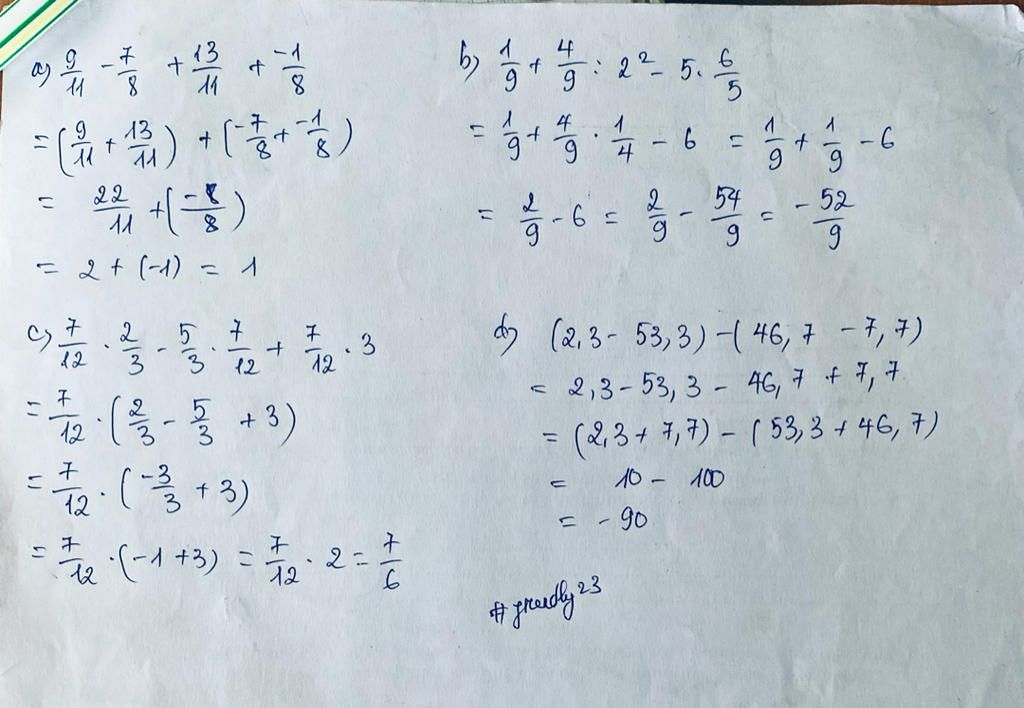 a) 9/11 - 7/8 + 13/11 + -1/8
= (9/11 + 13/11) + (-7/8 + -1/8)
= 22/11 + (-8/8)
= 2 + (-1) = 1
b) 1/9 + 4/9 : 2² - 5 . 6/5
= 1/9 + 4/9 . 1/4 - 6 = 1/9 + 1/9 - 6
= 2/9 - 6 = 2/9 - 54/9 = -52/9
c) 7/12 . 2/3 - 5/3 . 7/12 + 7/12 . 3
= 7/12 . (2/3 - 5/3 + 3)
= 7/12 . (-3/3 + 3)
= 7/12 . (-1 + 3) = 7/12 . 2 = 7/6
d) (2,3 - 53,3) - (46,7 - 7,7)
= 2,3 - 53,3 - 46,7 + 7,7
= (2,3 + 7,7) - (53,3 + 46,7)
= 10 - 100
= - 90